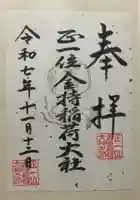 奉拝
正一位金持稲荷大社
令和七年十一月十二日